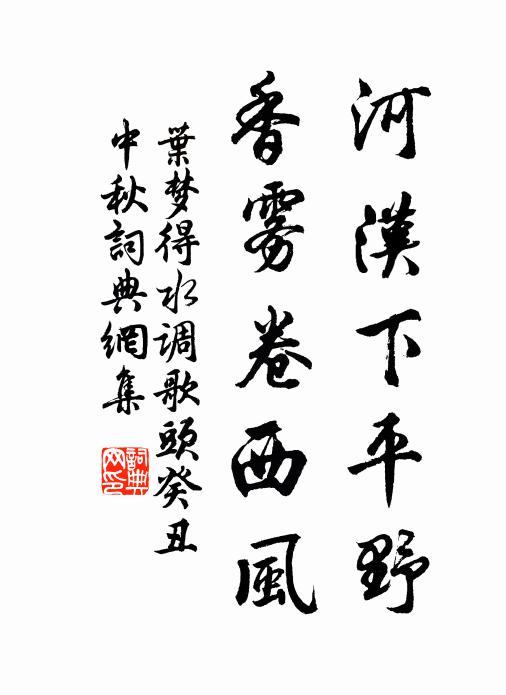 河漢下平野
香雾卷西風
葉梦得水调歌頭癸丑
中秋詞典網集
詞典网印